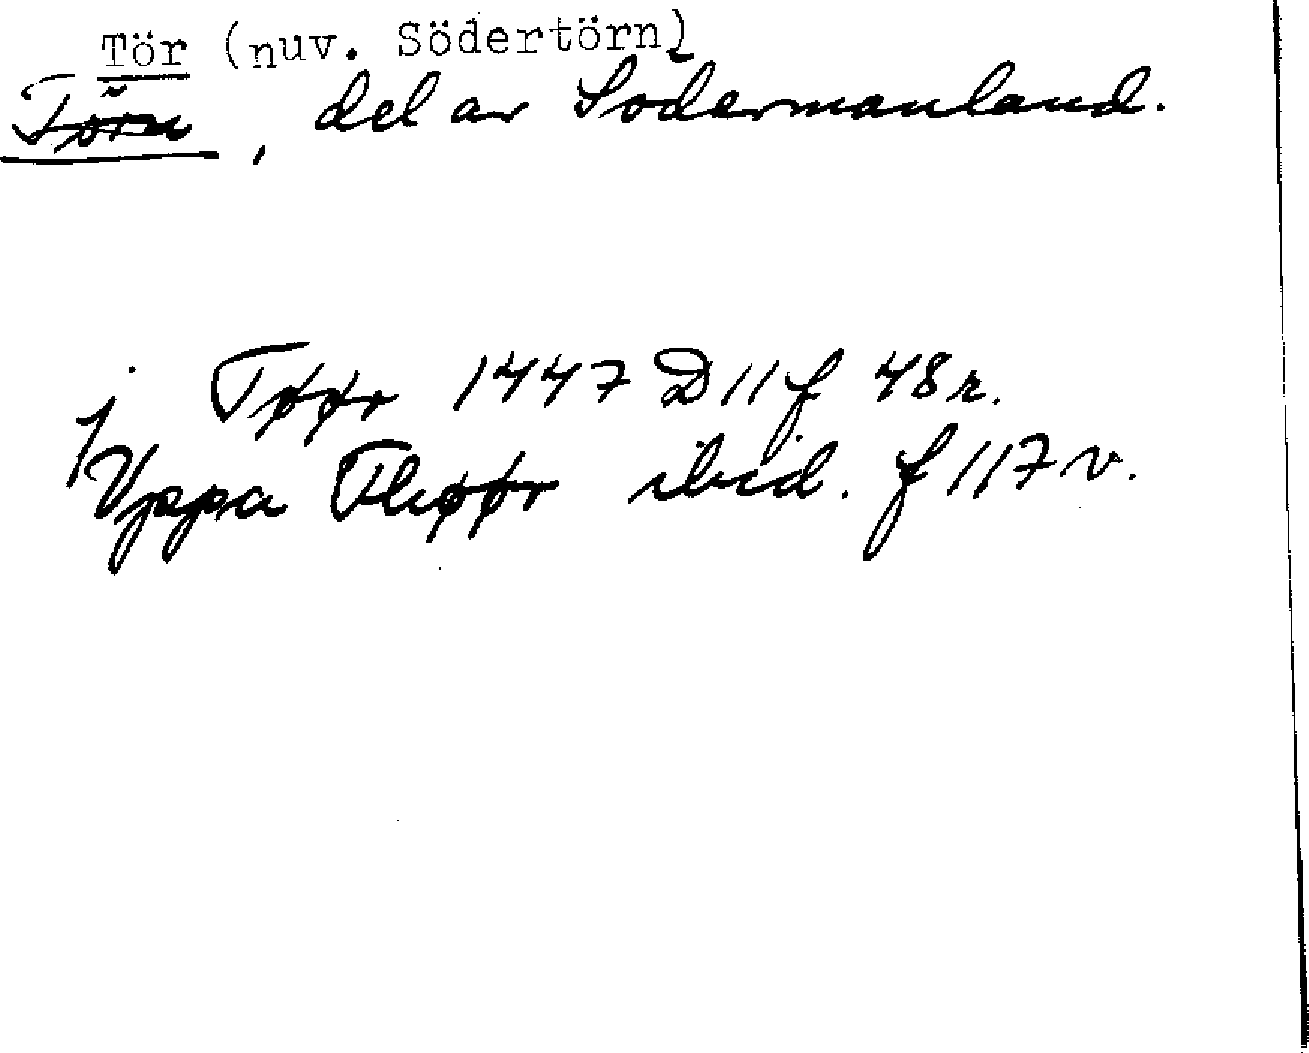 Tör (nuv. Södertörn)
Törn, del av Södermanland.
j Tøør 1447 D 11 f 48 r.
Vppa Thøør ibid. f 117 v.